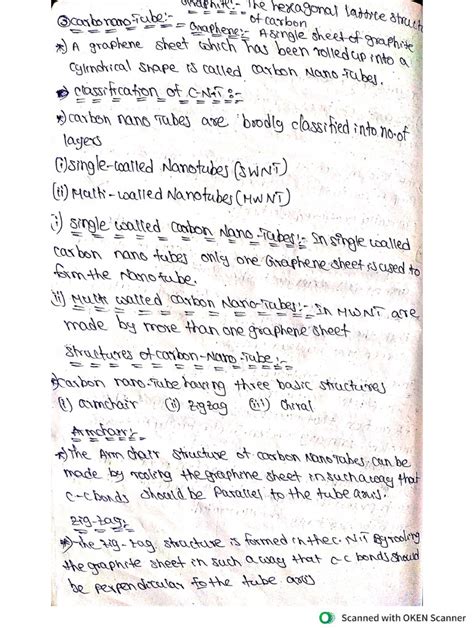 Graphite:- The hexagonal lattice struct
of carbon
③ carbon nano Tube:- Graphene:- A single sheet of graphite
*) A graphene sheet which has been rolled up into a
cylindrical shape is called carbon Nano Tubes.
classification of C-N-T :-
*) carbon nano Tubes are broodly classified into no.of
layers
(i) single-walled Nanotubes (SWNT)
(ii) Multi-walled Nanotubes (MWNT)
i) single walled carbon Nano Tubes:- In single walled
carbon nano tubes only one Graphene sheet is used to
form the Nano tube.
ii) Multi walled carbon Nano-Tubes:- In MWNT are
made by more than one graphene sheet
structures of carbon-Nano Tube :-
carbon nano-Tube having three basic structures
(i) armchair (ii) zigzag (iii) chiral
Armchair:-
*) The Arm chair structure of carbon Nano Tubes can be
made by rooling the graphine sheet in such a way that
C-C bonds should be Parallel to the tube axis.
Zig-zag:-
*) The zig-zag structure is formed in the C.N.T By rooling
the graphite sheet in such a way that C-C bonds should
be perpendicular to the tube axis
Scanned with OKEN Scanner